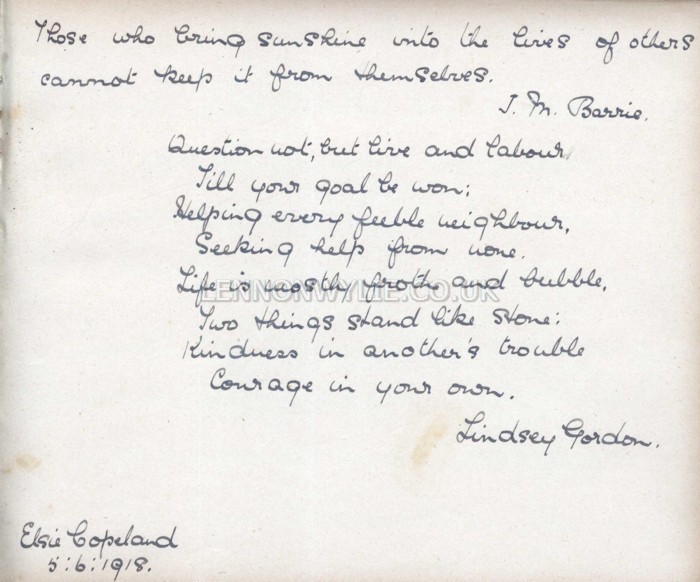 Those who bring sunshine into the lives of others
cannot keep it from themselves.
J. M. Barrie.
Question not, but live and labour
Till your goal be won;
Helping every feeble neighbour,
Seeking help from none.
Life is mostly froth and bubble,
LENNONWYLIE.CO.UK
Two things stand like stone:
Kindness in another's trouble
Courage in your own.
Lindsey Gordon.
Elsie Copeland
5:6:1918.